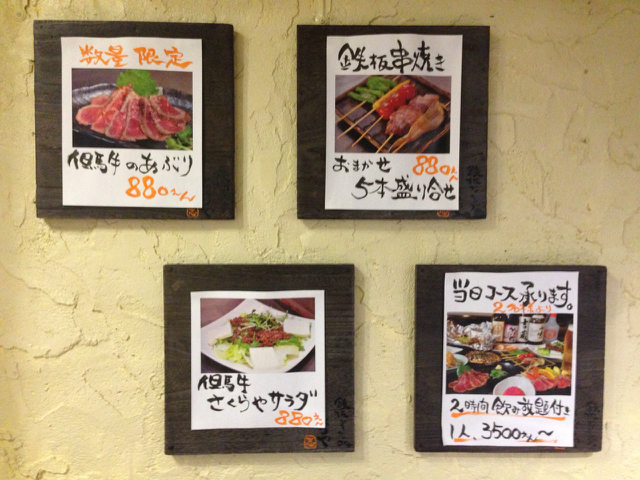 数量限定
但馬牛のあぶり
880えん
鉄板串焼き
おまかせ 880えん
5本盛り合せ
但馬牛
さくらやサラダ
880えん
当日コース承ります。
2名様より
2時間飲み放題付き
1人、3500えん〜